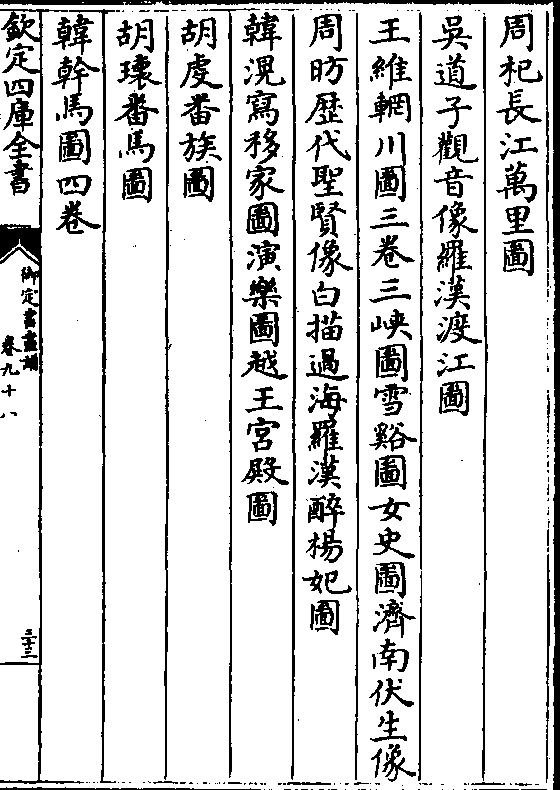 周杞長江萬里圖
吳道子觀音像羅漢渡江圖
王維輞川圖三卷三峽圖雪谿圖女史圖濟南伏生像
周昉歴代聖賢像白描過海羅漢醉楊妃圖
韓滉寫移家圖演樂圖越王宮殿圖
胡虔番族圖
胡瓌番馬圖
韓幹馬圖四卷
欽定四庫全書
御定書畫譜
卷九十八
三十三